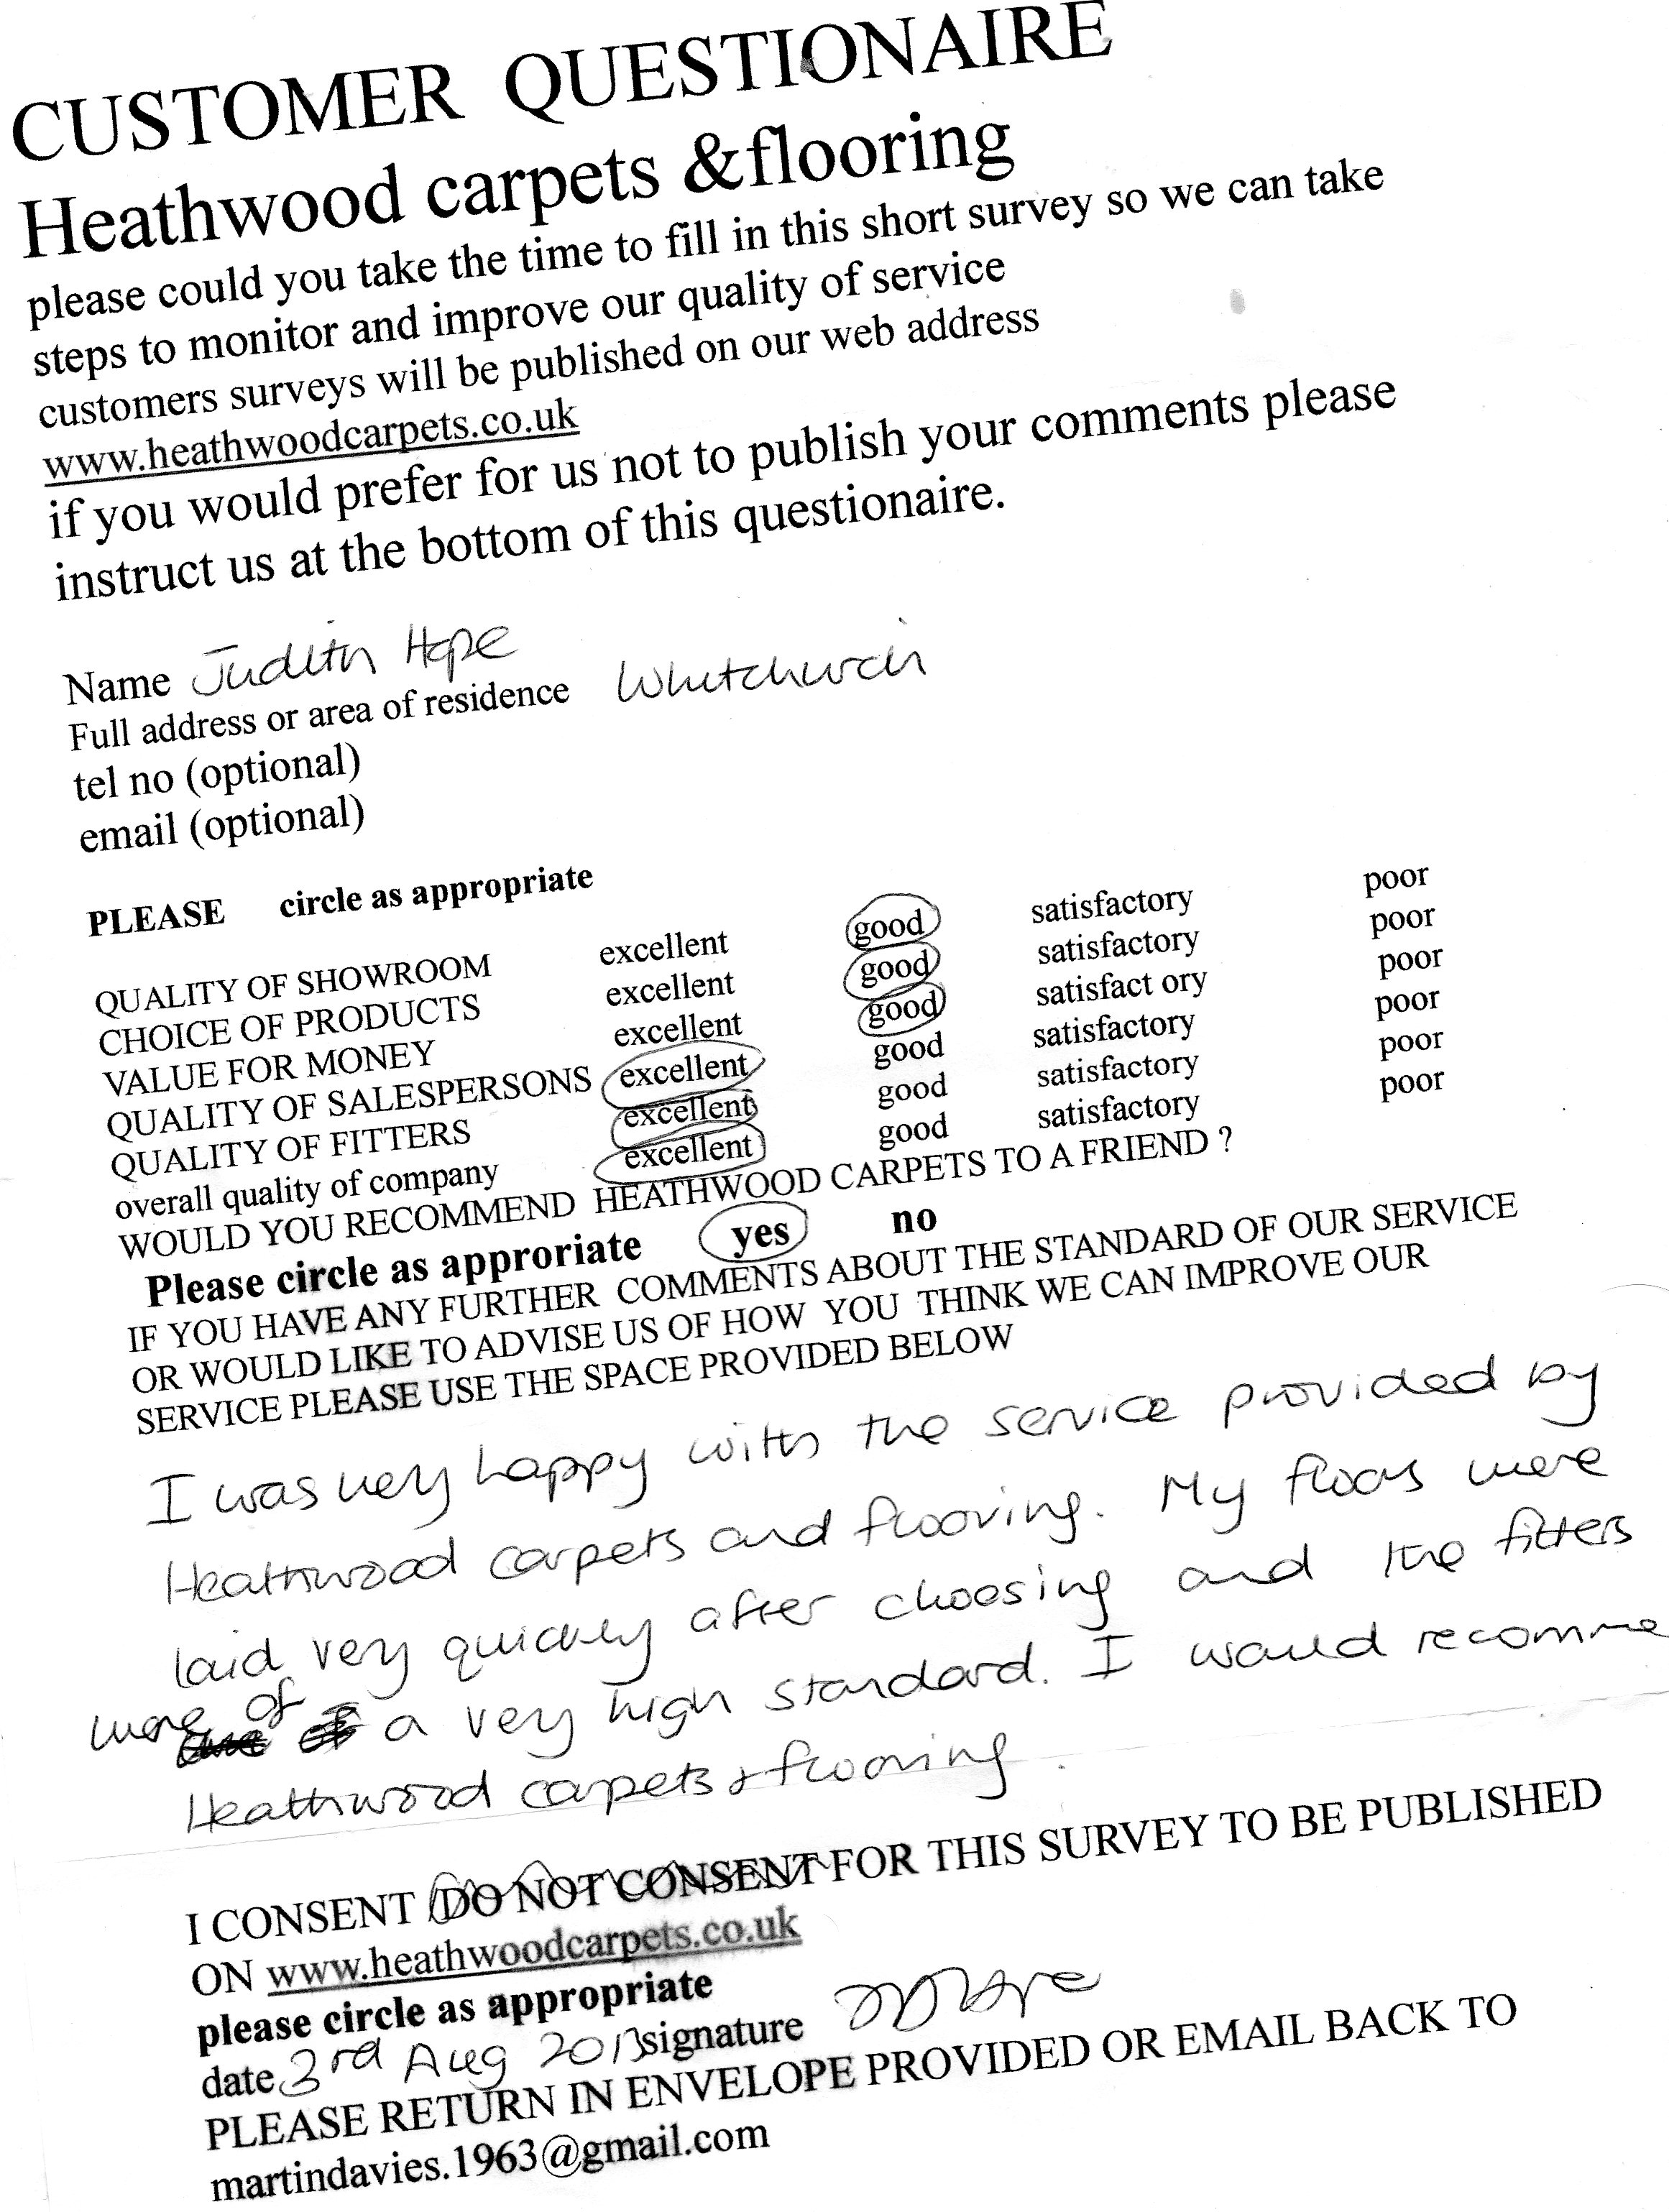 CUSTOMER QUESTIONAIRE
Heathwood carpets &flooring
please could you take the time to fill in this short survey so we can take
steps to monitor and improve our quality of service
customers surveys will be published on our web address
www.heathwoodcarpets.co.uk
if you would prefer for us not to publish your comments please
instruct us at the bottom of this questionaire.
Name Judith Hope
Full address or area of residence Whitchurch
tel no (optional)
email (optional)
PLEASE circle as appropriate
QUALITY OF SHOWROOM excellent good satisfactory poor
CHOICE OF PRODUCTS excellent good satisfactory poor
VALUE FOR MONEY excellent good satisfact ory poor
QUALITY OF SALESPERSONS excellent good satisfactory poor
QUALITY OF FITTERS excellent good satisfactory poor
overall quality of company excellent good satisfactory poor
WOULD YOU RECOMMEND HEATHWOOD CARPETS TO A FRIEND ?
Please circle as approriate yes no
IF YOU HAVE ANY FURTHER COMMENTS ABOUT THE STANDARD OF OUR SERVICE
OR WOULD LIKE TO ADVISE US OF HOW YOU THINK WE CAN IMPROVE OUR
SERVICE PLEASE USE THE SPACE PROVIDED BELOW
I was very happy with the service provided by
Heathwood carpets and flooring. My floors were
laid very quickly after choosing and the fitters
were of a very high standard. I would recomme
Heathwood carpets & flooring.
I CONSENT /DO NOT CONSENT FOR THIS SURVEY TO BE PUBLISHED
ON www.heathwoodcarpets.co.uk
please circle as appropriate
date 3rd Aug 2013 signature
PLEASE RETURN IN ENVELOPE PROVIDED OR EMAIL BACK TO
martindavies.1963@gmail.com